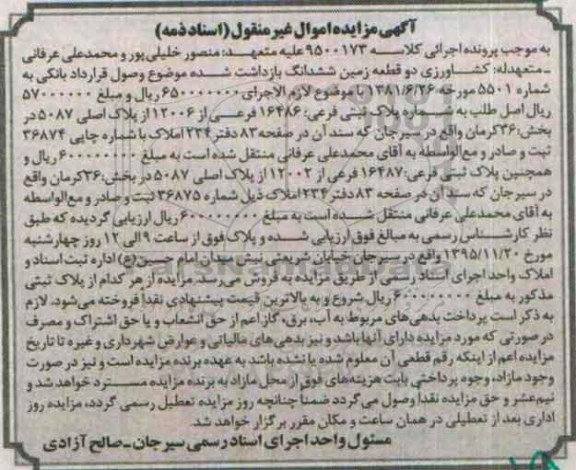 آگهی مزایده اموال غیر منقول (اسناد ذمه)
به موجب پرونده اجرائی کلاسه ۹۵۰۰۱۷۳ علیه متعهد: منصور خلیلی پور و محمدعلی عرفانی
ـ متعهدله: کشاورزی دو قطعه زمین ششدانگ بازداشت شده موضوع وصول قرارداد بانکی به
شماره ۵۵۰۱ مورخه ۱۳۸۱/۶/۲۶ با موضوع لازم الاجرای ۶۵۰۰۰۰۰۰۰ ریال و مبلغ ۵۷۰۰۰۰۰۰
ریال اصل طلب به شماره پلاک ثبتی فرعی: ۱۶۴۸۶ فرعی از ۱۲۰۰۶ از پلاک اصلی ۵۰۸۷ در
بخش: ۳۶ کرمان واقع در سیرجان که سند آن در صفحه ۸۳ دفتر ۲۳۴ املاک با شماره چاپی ۳۶۸۷۴
ثبت و صادر و مع الواسطه به آقای محمدعلی عرفانی منتقل شده است به مبلغ ۶۰۰۰۰۰۰۰۰ ریال و
همچنین پلاک ثبتی فرعی: ۱۶۴۸۷ فرعی از ۱۲۰۰۲ از پلاک اصلی ۵۰۸۷ در بخش: ۳۶ کرمان واقع
در سیرجان که سند آن در صفحه ۸۳ دفتر ۲۳۴ املاک ذیل شماره ۳۶۸۷۵ ثبت و صادر و مع الواسطه
به آقای محمدعلی عرفانی منتقل شده است به مبلغ ۶۰۰۰۰۰۰۰۰ ریال ارزیابی گردیده که طبق
نظر کارشناس رسمی به مبالغ فوق ارزیابی شده و پلاک فوق از ساعت ۹ الی ۱۲ روز چهارشنبه
مورخ ۱۳۹۵/۱۱/۲۰ واقع در سیرجان خیابان شریعتی نبش میدان امام حسین (ع) اداره ثبت اسناد و
املاک واحد اجرای اسناد رسمی از طریق مزایده به فروش می‌رسد. مزایده از هر کدام از پلاک ثبتی
مذکور به مبلغ ۶۰۰۰۰۰۰۰۰ ریال شروع و به بالاترین قیمت پیشنهادی نقدا فروخته می‌شود. لازم
به ذکر است پرداخت بدهی‌های مربوط به آب، برق، گاز اعم از حق انشعاب و یا حق اشتراک و مصرف
در صورتی که مورد مزایده دارای آنها باشد و نیز بدهی‌های مالیاتی و عوارض شهرداری و غیره تا تاریخ
مزایده اعم از اینکه رقم قطعی آن معلوم شده یا نشده باشد به عهده برنده مزایده است و نیز در صورت
وجود مازاد، وجوه پرداختی بابت هزینه‌های فوق از محل مازاد به برنده مزایده مسترد خواهد شد و
نیم عشر و حق مزایده نقدا وصول می‌گردد ضمنا چنانچه روز مزایده تعطیل رسمی گردد، مزایده روز
اداری بعد از تعطیلی در همان ساعت و مکان مقرر برگزار خواهد شد.
مسئول واحد اجرای اسناد رسمی سیرجان ـ صالح آزادی